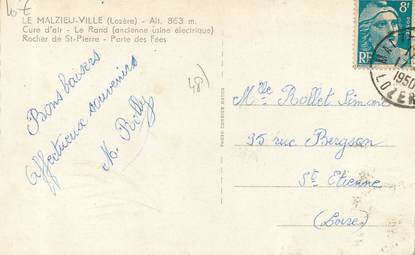 10 €
LE MALZIEU-VILLE (Lozère) - Alt. 863 m.
Cure d'air - Le Rand (ancienne usine électrique)
Rocher de St-Pierre - Porte des Fées
Bons baisers
Affectueux souvenirs
48)
Melle Rollet Simone
95 rue Bergson
St Etienne
(Loire)
8F
RF
1950
LOZERE